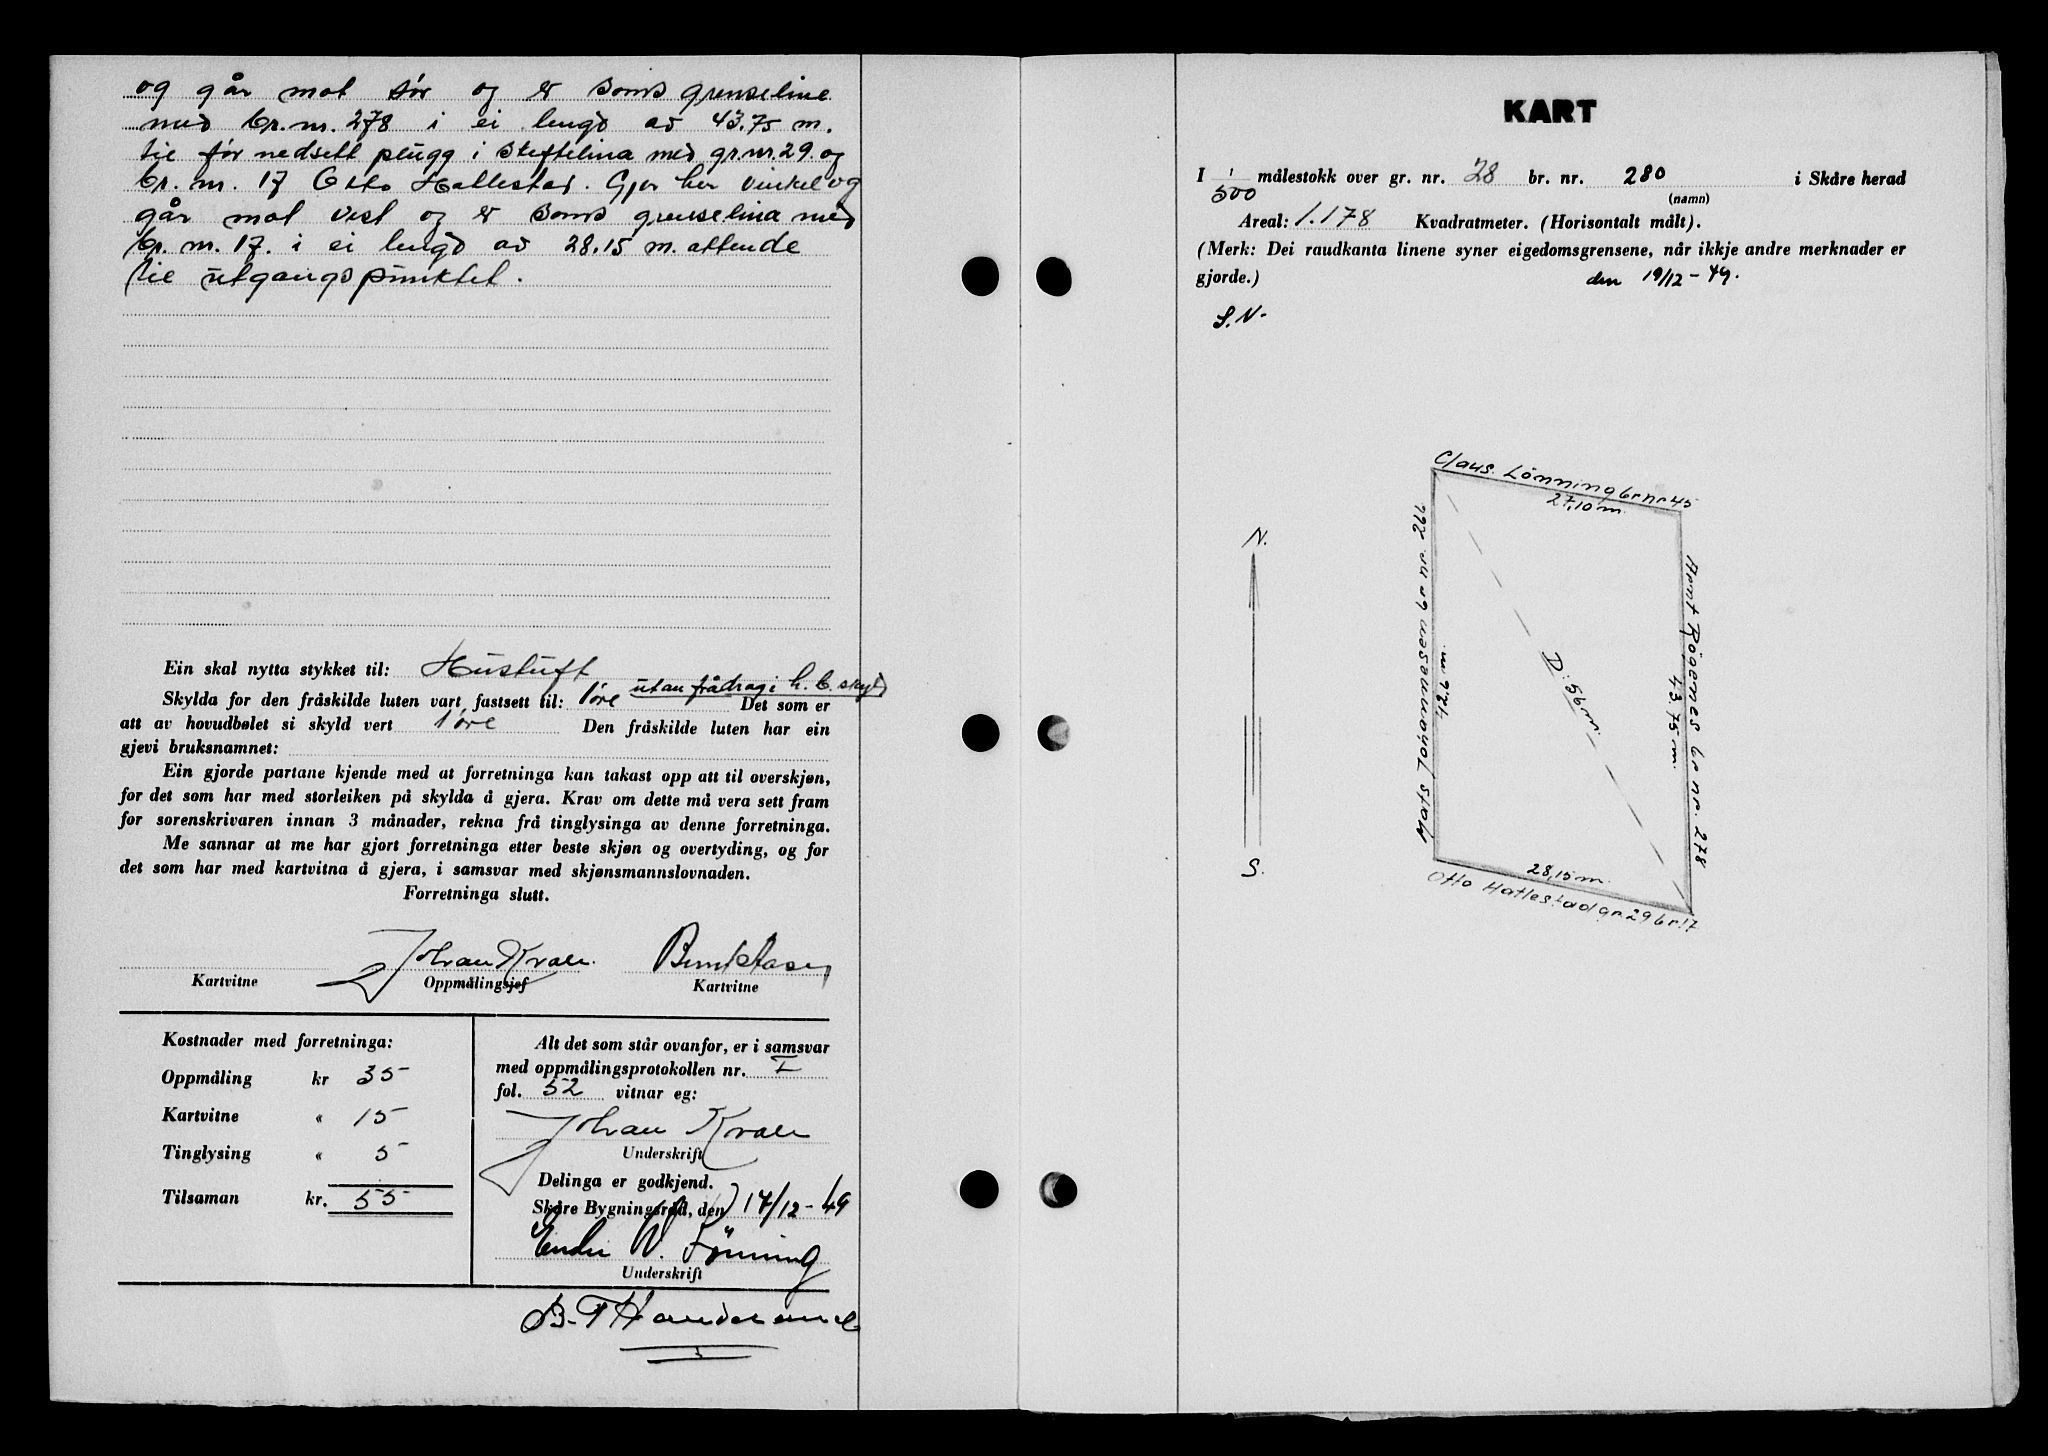 og går mot sør og er sams grenseline
med br.nr. 278 i ei lengd av 43.75 m.
til før nedsett plugg i skiftelina med gr.nr. 29 og
br. nr. 17 Otto Hatlestad. Gjer her vinkel og
går mot vest og er sams grenselina med
br. nr. 17. i ei lengd av 28.15 m. attende
til utgangspunktet.
Ein skal nytta stykket til: Hustuft
utan frådrag i h. b. skyld
Skylda for den fråskilde luten vart fastsett til: 1 øre Det som er
att av hovudbølet si skyld vert 1 øre Den fråskilde luten har ein
gjevi bruksnamnet:
Ein gjorde partane kjende med at forretninga kan takast opp att til overskjøn,
for det som har med storleiken på skylda å gjera. Krav om dette må vera sett fram
for sorenskrivaren innan 3 månader, rekna frå tinglysinga av denne forretninga.
Me sannar at me har gjort forretninga etter beste skjøn og overtyding, og for
det som har med kartvitna å gjera, i samsvar med skjønsmannslovnaden.
Forretninga slutt.
Johan Kvale.
Kartvitne Oppmålingsjef Kartvitne
Kostnader med forretninga:
Oppmåling kr 35
Kartvitne " 15
Tinglysing " 5
Tilsaman kr. 55
Alt det som står ovanfor, er i samsvar
med oppmålingsprotokollen nr. I
fol. 52 vitnar eg:
Johan Kvale
Underskrift
Delinga er godkjend.
Skåre Bygningsråd, den 17/12-49
Endre N. Lønning
Underskrift
KART
I 1/500 målestokk over gr. nr. 28 br. nr. 280 i Skåre herad
(namn)
Areal: 1.178 Kvadratmeter. (Horisontalt målt).
(Merk: Dei raudkanta linene syner eigedomsgrensene, når ikkje andre merknader er
gjorde.) den 19/12-49.
S.N.
Claus. Lönning br nr 45
27,10 m.
N.
S.
Mats Johannessen br nr. 266
42.6 m
D: 56 m
43.75 m.
Arnt Rögenes br nr. 278
28,15 m.
Otto Hatlestad gr 29 br 17